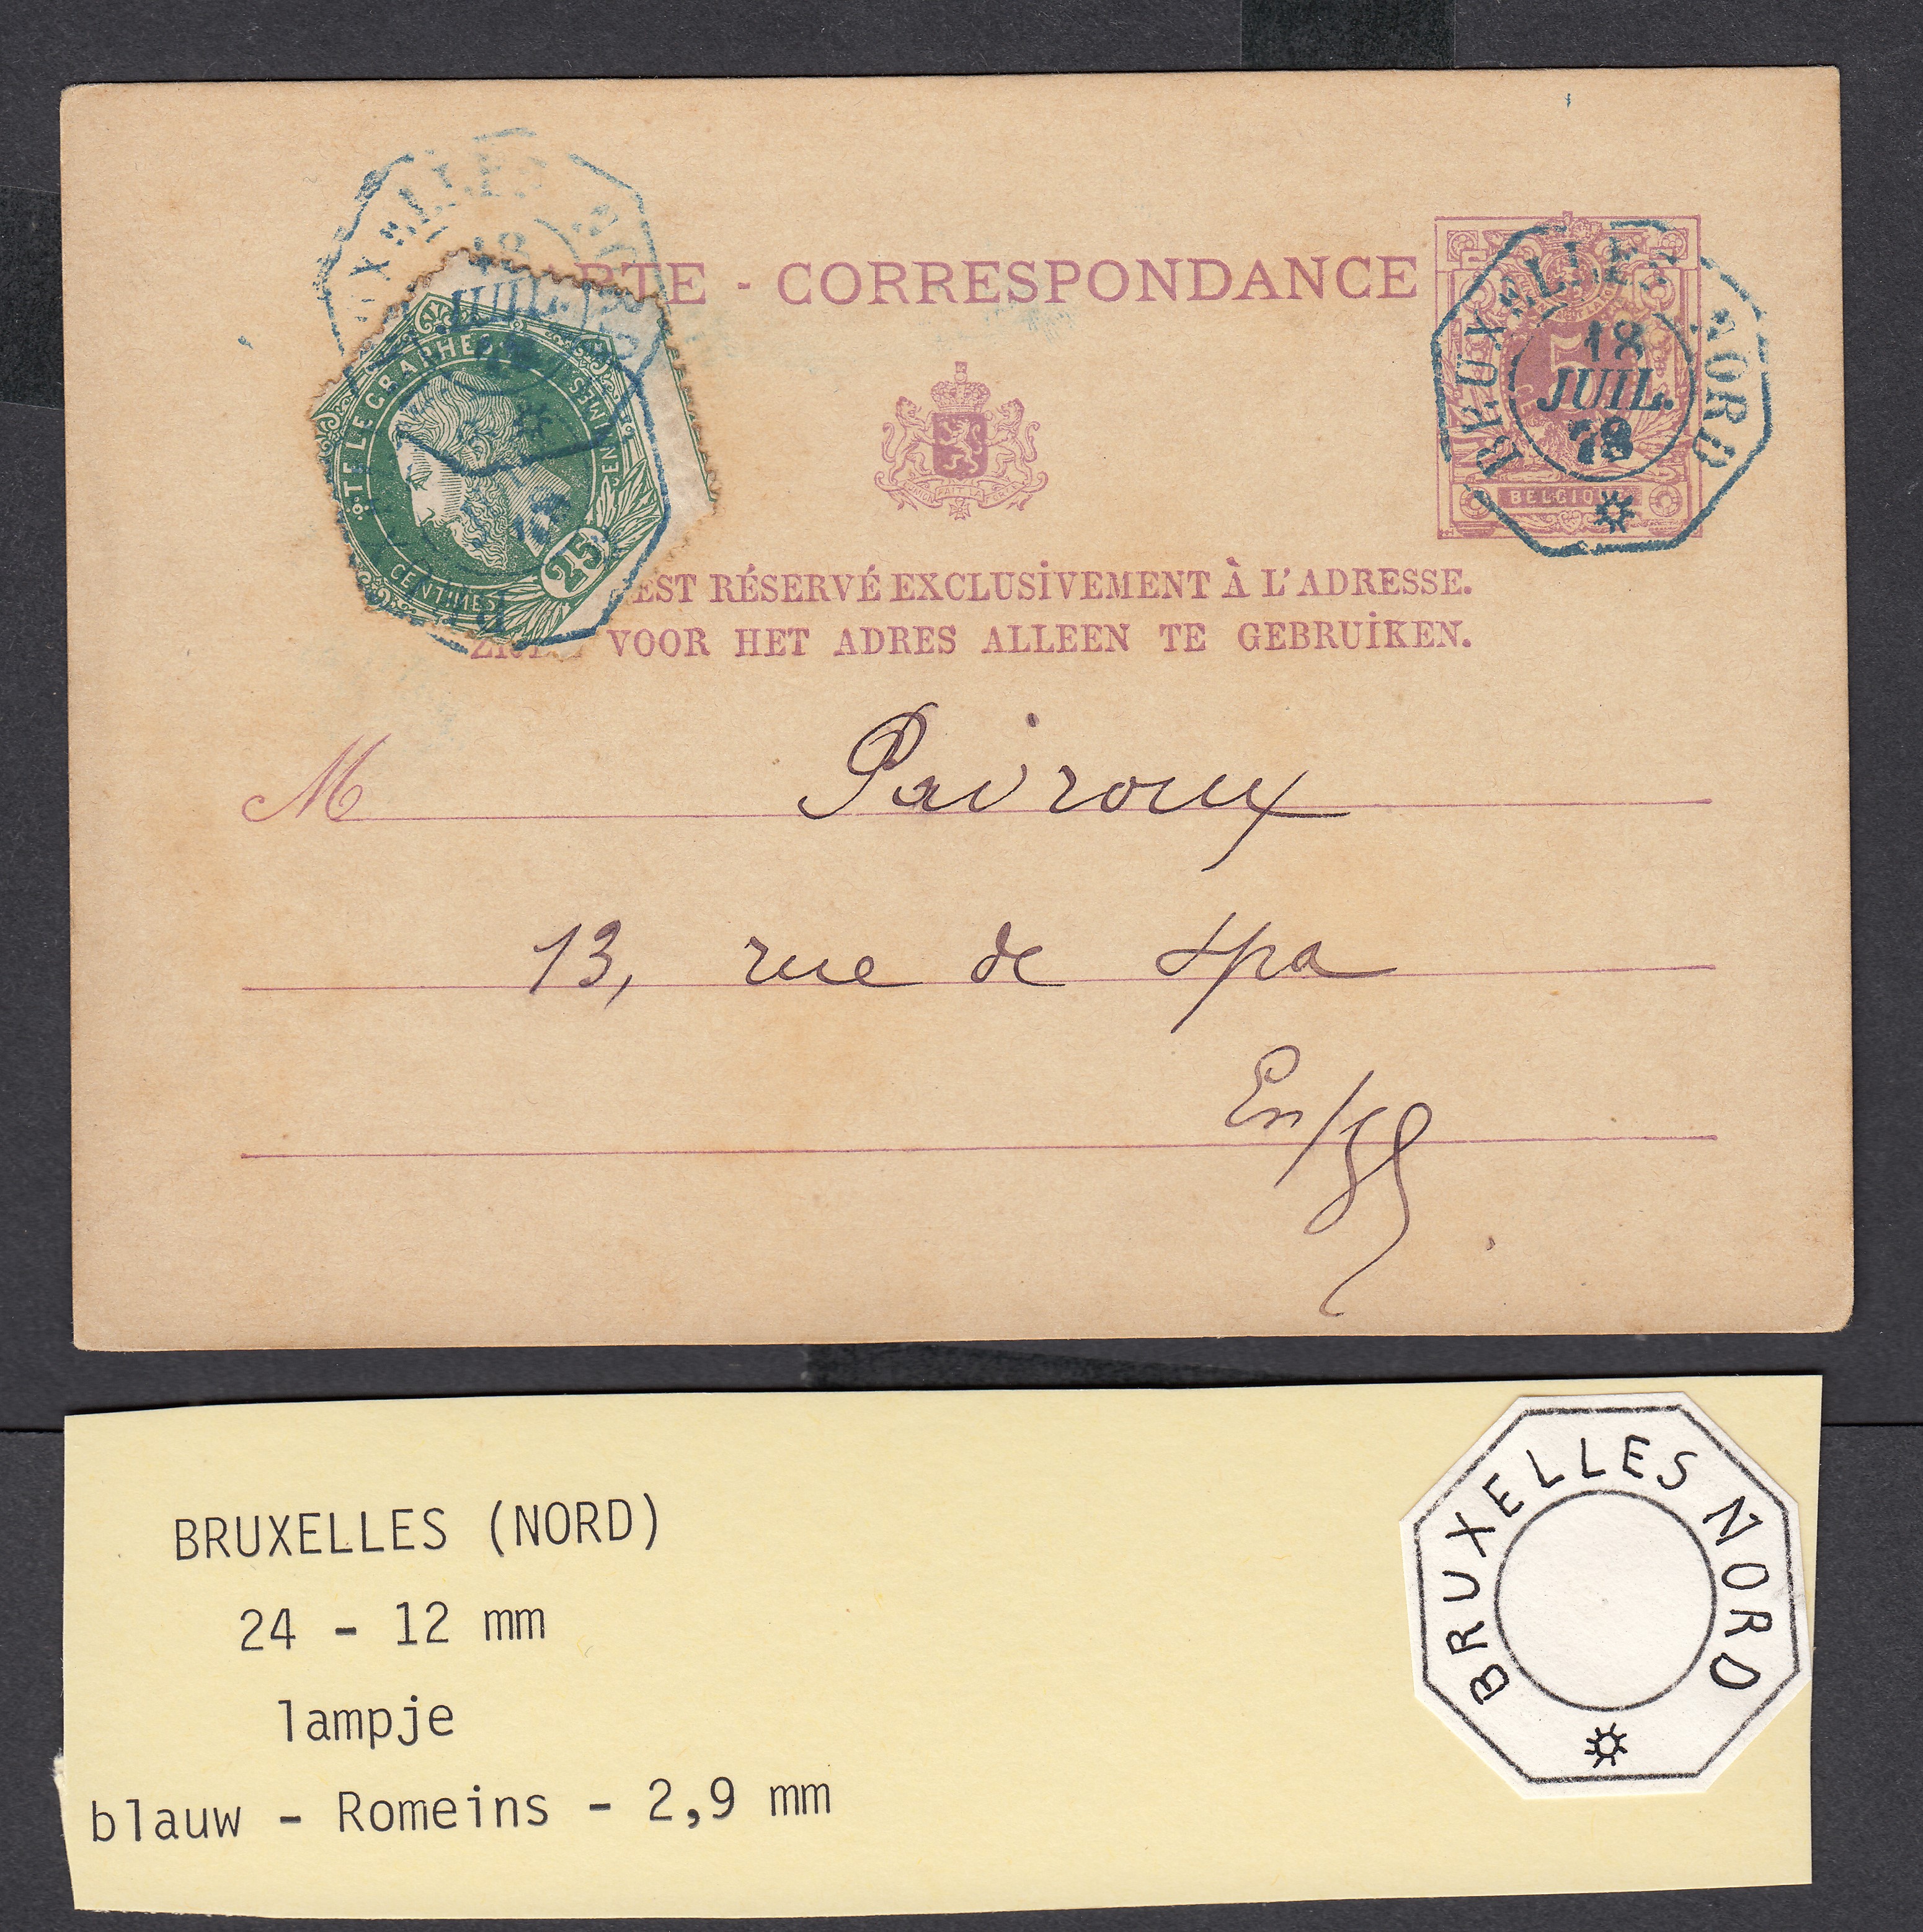 CARTE - CORRESPONDANCE
BRUXELLES NORD
18
JUIL.
78
5
BELGIQUE
L'UNION FAIT LA FORCE
XELLES
18
JUIL.
TELEGRAPHES
25
CENTIMES
EST RÉSERVÉ EXCLUSIVEMENT À L'ADRESSE.
VOOR HET ADRES ALLEEN TE GEBRUIKEN.
M Pairoux
13, rue de Spa
BRUXELLES (NORD)
24 - 12 mm
lampje
blauw - Romeins - 2,9 mm
BRUXELLES NORD